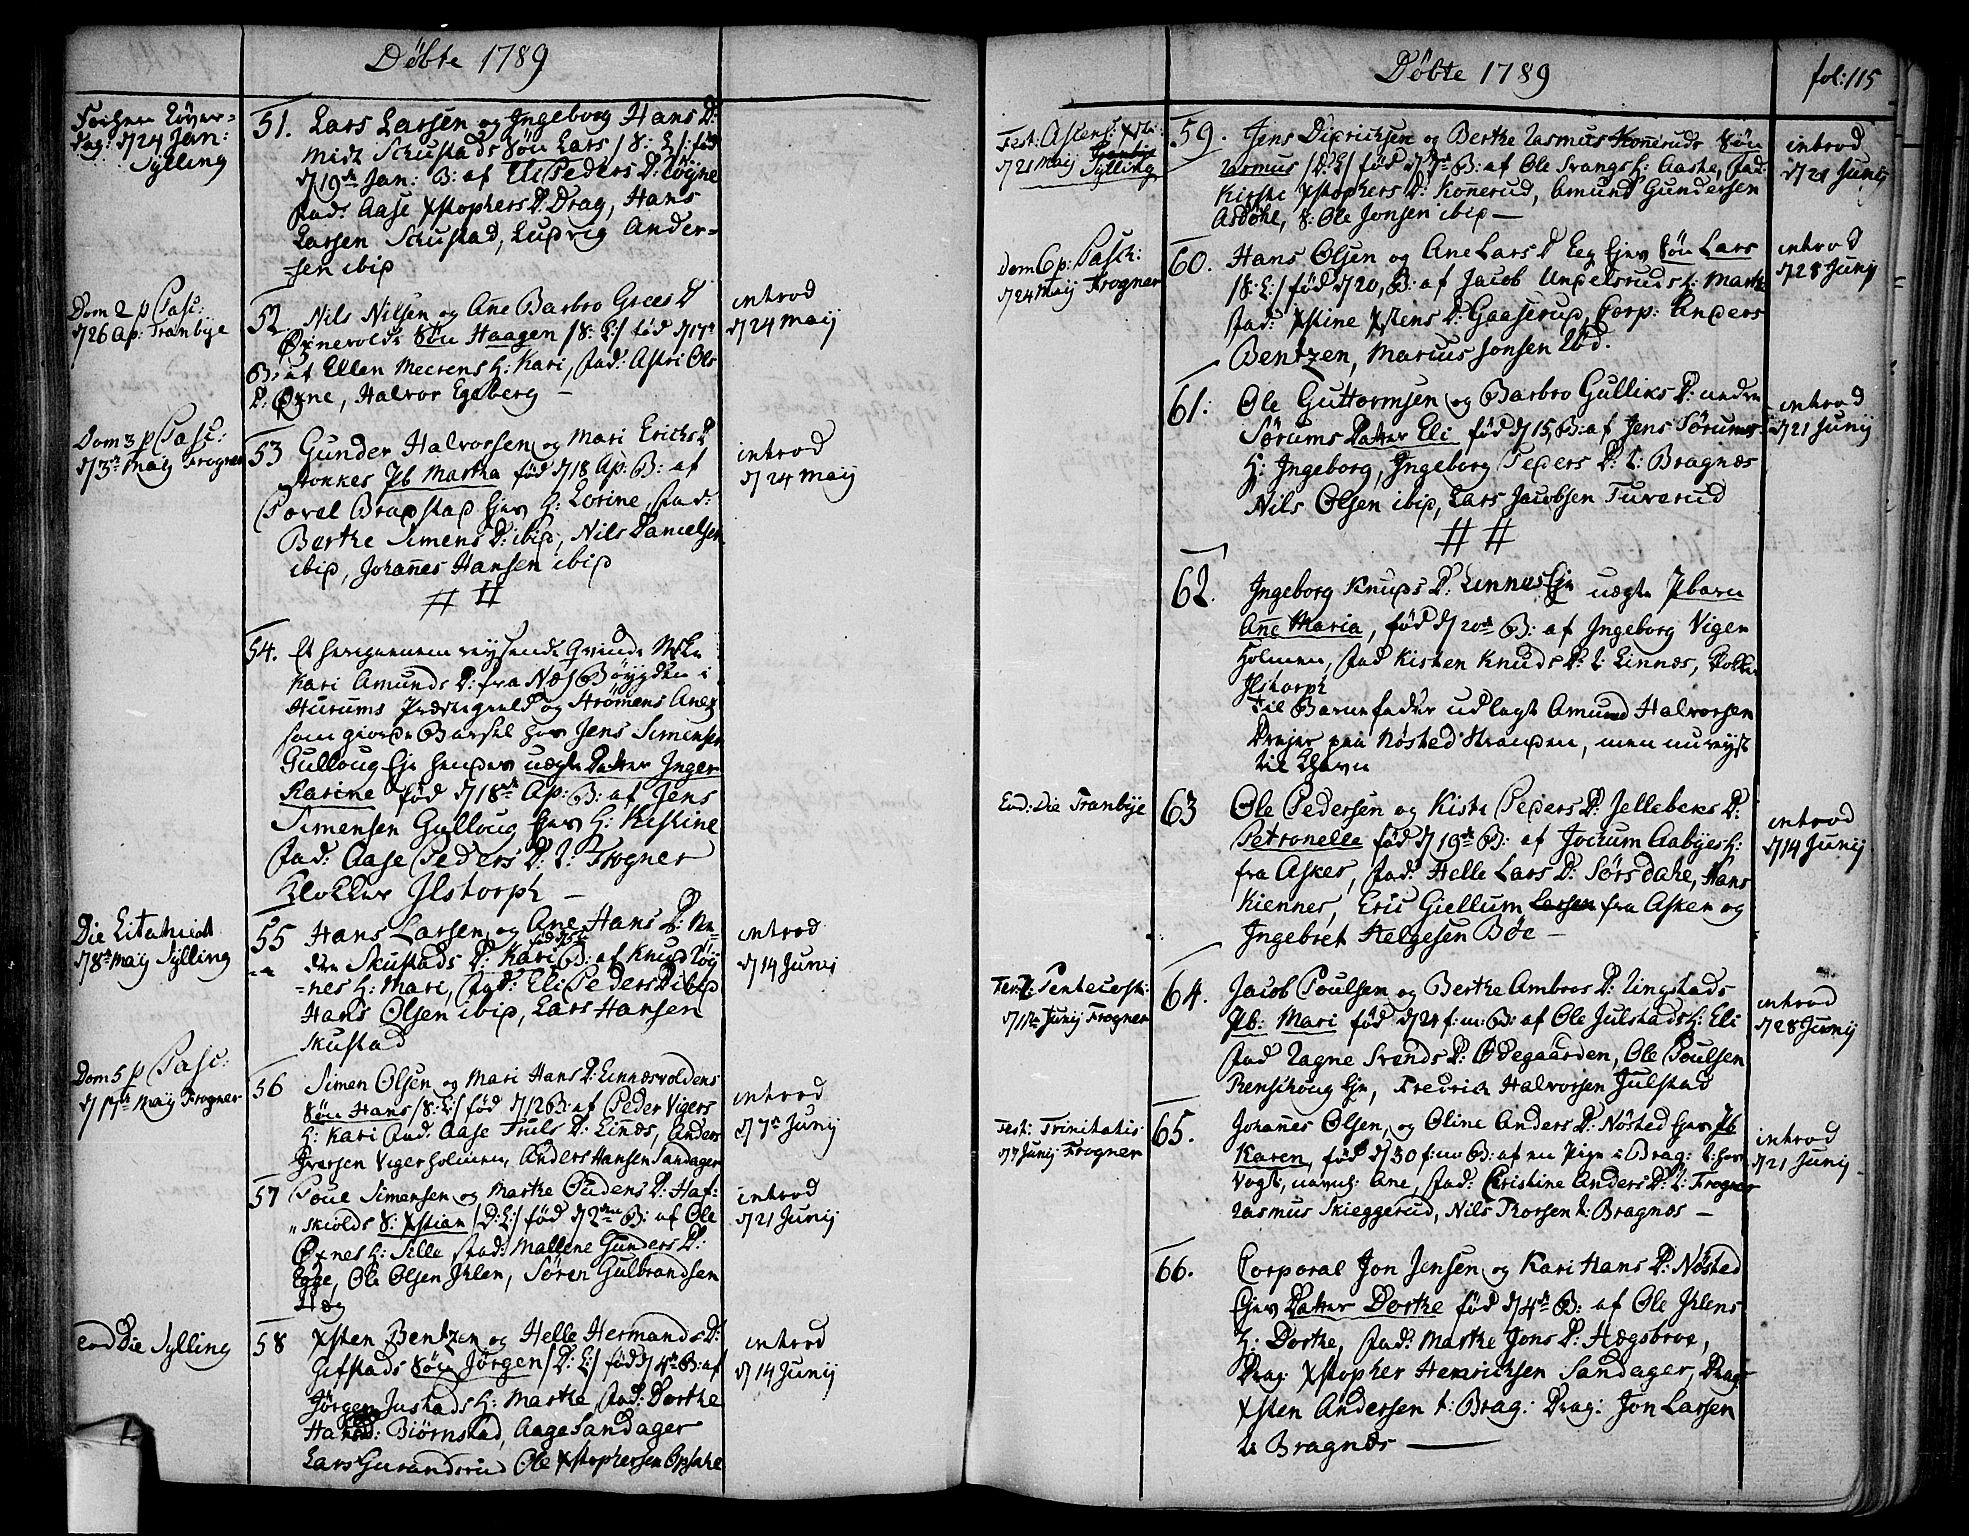 Døbte 1789
Tag: d/24 Jan:
Sylling
51. Lars Larsen og Ingeborg Hans D:
Søn Lars /8: L:/ fød
d/19de Jan: B: af Eli Peders D: Løgne
fad: Aase Xstophers D: Drag, Hans
Larsen Skustad, Ludvig Ander-
sen ibid
Dom 2 p Pasc:
d/26 Ap: Tranbye
52 Nils Nilsen og Ane Barbro Grees D
Øxnevolds Søn Haagen /8: L:/ fød d/17de
B: af Ellen Meerens H: Kari, fad: Astri Ols
D: Øxne, Halvor Egeberg —
introd
d/24 Maij
Dom 3 p Pasc:
d/3de Maij Frogner
53 Gunder Halvorsen og Mari Erichs D
Stokkes Pb Martha fød d/18 Ap: B: af
Povel Bradstad Ejer H: Lorine, fad:
Berthe Simens D: ibid, Nils Danielsen
ibid, Johanes Hansen ibid
# #
introd
d/24 Maij
54. Et herigiennem reysende Qvinde Mske
Kari Amunds D: fra Næs Bøygden i
Hurums Præstegield og Strømens Anex
som giorde Barsel hos Jens Simensen
Gulloug Eje hendes uægte Datter Inger
Karine fød d/18de Ap: B: af Jens
Simensen Gulloug Ejer H: Kistine
fad: Aase Peders D: t: Frogner
Klokker Ilstorph —
d/8de Maij Sylling
55 Hans Larsen og Ane Hans D: Ne-
dre Skustads D: Kari fød d/5te B: af Knud Løg
=nes H: Mari, fad: Eli Peders D ibid
Hans Olsen ibid, Lars Hansen
Skustad
introd
d/14 Junij
Dom 5 p Pasc:
d/17de Maij Frogner
56 Simen Olsen og Mari Hans D: Linnæsvoldens
Søn Hans /8: L:/ fød d/12 B: af Peder Vigers
H: Kari fad: Aase Truls D: Linæs, Anders
Iversen Vigerholmen, Anders Hansen Sandager
introd
d/7de Junij
57 Poul Simensen og Marthe Gudens D: Haf-
skiolds S: Xstian /D: L:/ fød d/2den B: af Ole
Øxnes H: Sille fad: Mallene Gunders D:
Egge, Ole Olsen Ihlen, Søren Gulbrandsen
introd
d/21 Junij
eod Die Sylling
58 Xsten Bentzen og Helle Hermands D:
Gifstads Søn Jørgen /D: L:/ fød d/4de B: af
Jørgen Justads H: Marthe fad: Dorthe
Bjørnstad, Aage Sandager
Lars Gurandsrud Ole Xstophersen Opsahl
introd
d/14 Junij
Døbte 1789
fol: 115
Fest: Ascens: Xsti:
d/21 Maij Sylling
59. Jens Didrichsen og Berthe Rasmus Konneruds Søn
Rasmus /D: L:/ fød d/7de B: af Ole Svangs H: Aashe, fad:
Kisthi Xstophers D: Konerud, Amund Gundersen
Asdøhl, 8: Ole Jonsen ibid —
introd
d/21 Junij
Dom 6 p: Pasch:
d/24 Maij Frogner
60. Hans Olsen og Ane Lars D Eeg Ejer Søn Lars
/8: L:/ fød d/20, B: af Jacob Undelsruds H: Marthe
fad: Xstine Xstens D: Gaaserud, Corp: Anders
Bentzen, Marius Jonsen ibd.
introd
d/28 Junij
61. Ole Guttormsen og Barbro Gulliks D: nedre
Sørums Datter Eli fød d/15, B: af Jens Sørums
H: Ingeborg, Ingeborg Peders D: t: Bragnæs
Nils Olsen ibid, Lars Jacobsen Tuverud
# #
introd
d/21 Junij
62. Ingeborg Knuds D: Linnes Eje uægte Pbarn
Ane Maria, fød d/20de B: af Ingeborg Viger
Holmen, fad Kisten Knuds D: t: Linnæs,
Ilstorph
til Barnefader udlagt Amund Halvorsen
Drejer paa Nøsted Stranden, men nu reyst
til Khavn
Eod: Die Tranbye
63 Ole Pedersen og Kisti Peders D: Jellebeks D:
Petronelle fød d/19de B: af Jochum Aabyes H:
fra Asker, fad: Helle Lars D: Sørsdahl, Hans
Kiennes, Eric Giellum Larsen fra Asker og
Ingebret Helgesen Bøe —
introd
d/14 Junij
Fer: 2: Pentecost:
d/1ste Junij Frogner
64. Jacob Poulsen og Berthe Ambros D: Ringstads
Pb: Mari fød d/24 f: m: B: af Ole Julstads H: Eli
fad Ragne Svends D: Ødegaarden, Ole Poulsen
Rensthoug Eje, Fredrich Halvorsen Julstad
introd
d/28 Junij
Fest: Trinitatis
d/7 Junij Frogner
65. Johanes Olsen, og Oline Anders D: Nøsted Ejer Pb
Karen, fød d/30 f: m: B: af en Pige i Brag: t: hos
Vogt, navnl: Ane, fad: Christine Anders D: t: Frogner
Rasmus Skieggerud, Nils Thorsen t: Bragnæs —
introd
d/21 Junij
66. Corporal Jon Jensen og Kari Hans D: Nøsted
Ejer Datter Dorthe fød d/4de B: af Ole Ihlens
H: Dorthe, fad: Marthe Jons D: Hægsbroe,
Drag: Xstopher Henrichsen Sandager, Drag:
Xsten Andersen t: Brag: Drag: Jon Larsen
t: Bragnæs —